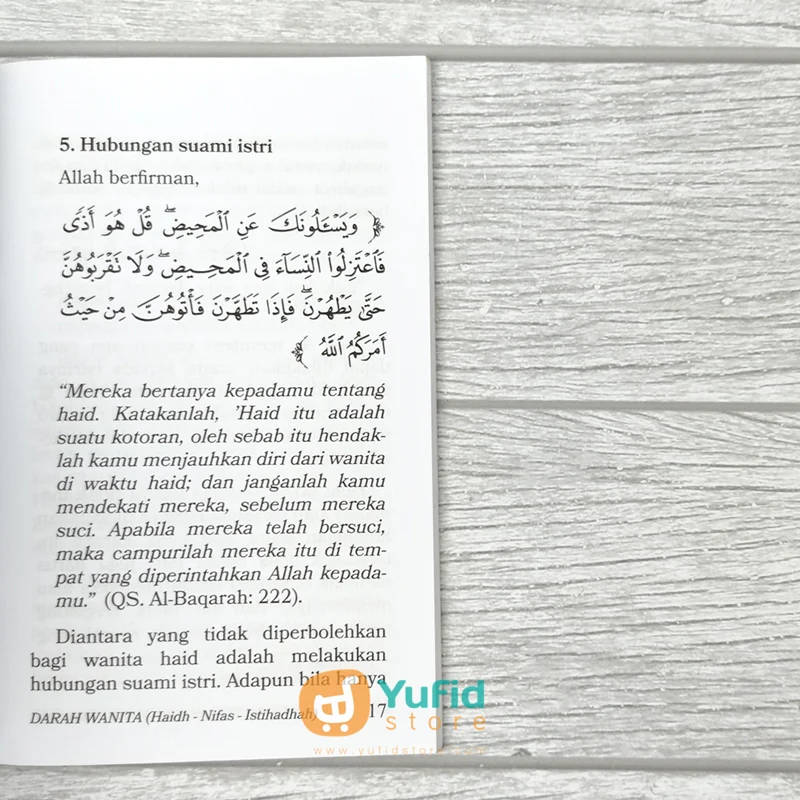 5. Hubungan suami istri
Allah berfirman,
﴿ وَيَسْـَٔلُونَكَ عَنِ ٱلْمَحِيضِ ۖ قُلْ هُوَ أَذًى
فَٱعْتَزِلُوا۟ ٱلنِّسَآءَ فِى ٱلْمَحِيضِ ۖ وَلَا تَقْرَبُوهُنَّ
حَتَّىٰ يَطْهُرْنَ ۖ فَإِذَا تَطَهَّرْنَ فَأْتُوهُنَّ مِنْ حَيْثُ
أَمَرَكُمُ ٱللَّهُ ﴾
“Mereka bertanya kepadamu tentang
haid. Katakanlah, ’Haid itu adalah
suatu kotoran, oleh sebab itu hendak-
lah kamu menjauhkan diri dari wanita
di waktu haid; dan janganlah kamu
mendekati mereka, sebelum mereka
suci. Apabila mereka telah bersuci,
maka campurilah mereka itu di tem-
pat yang diperintahkan Allah kepada-
mu.” (QS. Al-Baqarah: 222).
Diantara yang tidak diperbolehkan
bagi wanita haid adalah melakukan
hubungan suami istri. Adapun bila hanya
DARAH WANITA (Haidh - Nifas - Istihadhah) 17
Yufid
store
www.yufidstore.com